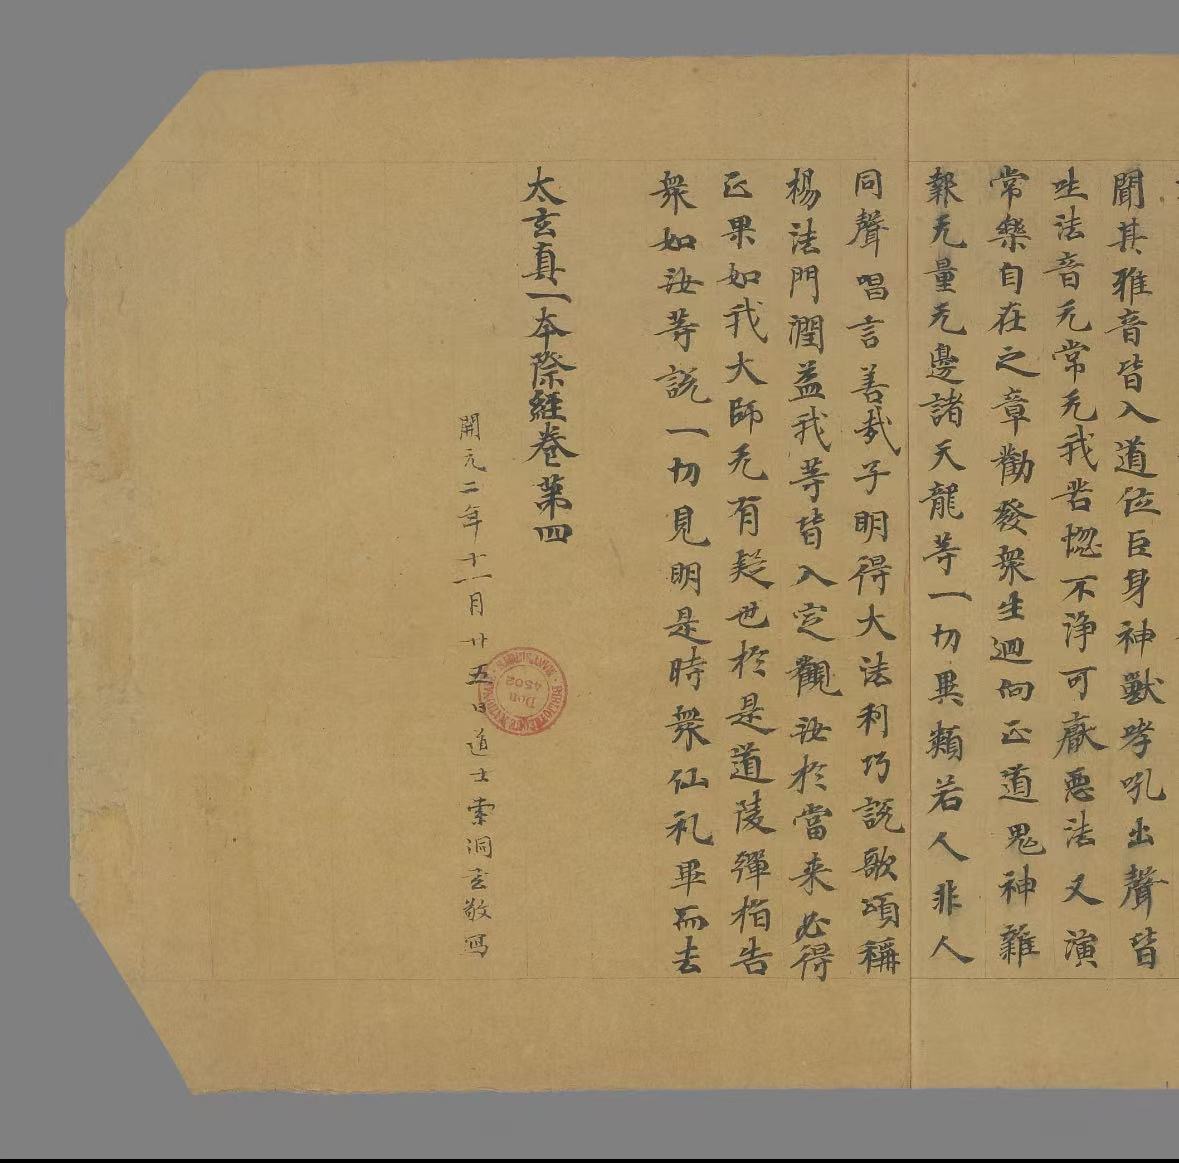 聞其雅音皆入道位巨身神獸哮吼出聲皆
吐法音无常无我苦惚不淨可猒惡法又演
常樂自在之章勸發衆生迴向正道鬼神雜
報无量无邊諸天龍等一切異類若人非人
同聲唱言善哉子明得大法利巧說歌頌稱
楊法門潤益我等皆入定觀汝於當来必得
正果如我大師无有疑也於是道陵彈指告
衆如汝等說一切見明是時衆仙礼畢而去
太玄真一本際經卷第四
開元二年十一月廿五日道士索洞玄敬寫
Don 4502